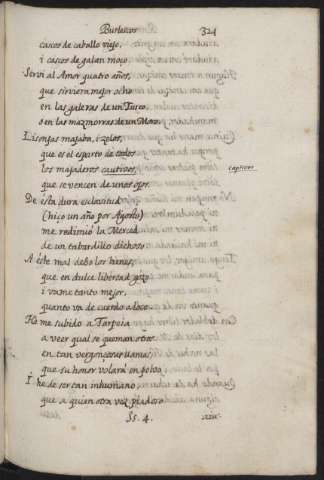 Burlescos 324
cascos de caballo viejo,
i cascos de galan moço.
Serví al Amor quatro años,
que sirviera mejor ocho
en las galeras de un Turco,
o en las mazmorras de un Moro.
Lisonjas majaba, i zelos,
que es el esparto de todos
los majaderos cautivos, captivos
que se vencen de unos ojos.
De esta dura esclavitud
(hiço un año por Agosto)
me redimió la Merced
de un tabardillo dichoso.
A éste mal debo los bienes,
que en dulce libertad gozo
i vame tanto mejor,
quanto va de cuerdo a loco.
Heme subido a Tarpeia
a veer qual se queman otros
en tan vergonzosas llamas,
que su honor volará en polvo,
I he de ser tan inhumano,
que a quien otra vez piadoso
Ss. 4.